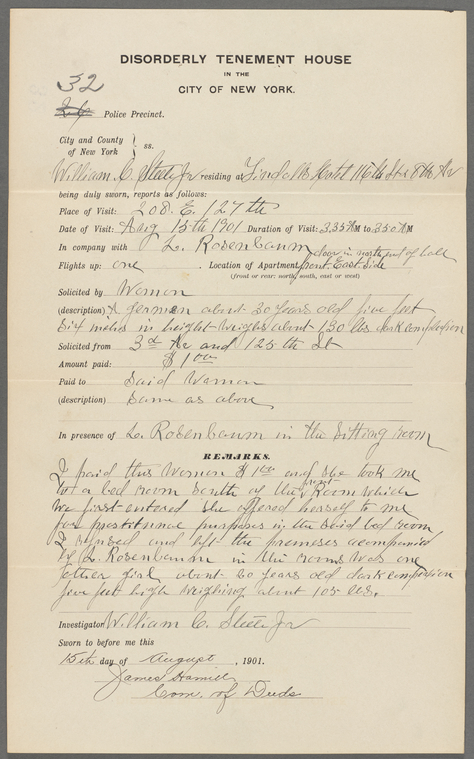 DISORDERLY TENEMENT HOUSE
IN THE
CITY OF NEW YORK.
32
Police Precinct.
City and County
of New York } ss.
William C. Steele Jr residing at Hotel 116th St & 8th Av
being duly sworn, reports as follows:
Place of Visit: 208. E. 127th
Date of Visit: Aug 15th 1901 Duration of Visit: 3.35 AM to 3.50 AM
In company with L. Rosenbaum
door in north end of hall
Flights up: one . Location of Apartment, front East Side
(front or rear: north, south, east or west)
Solicited by Woman
(description) A german about 30 years old five feet
six inches in height weighs about 130 lbs dark complexion
Solicited from 3rd Av and 125th St
Amount paid: $1.00
Paid to Said Woman
(description) Same as above
In presence of L. Rosenbaum in the Sitting room
REMARKS.
I paid this Woman $1.00 and she took me
to a bed room South of the front Room which
we first entered she offered herself to me
for prostitution purposes in the said bed room
I refused and left the premises acompanied
by L. Rosenbaum in the rooms was one
other girl about 20 years old dark complexion
five feet high weighing about 105 lbs.
Investigator William C. Steele Jr
Sworn to before me this
15th day of August , 1901.
James Hamill
Com. of Deeds